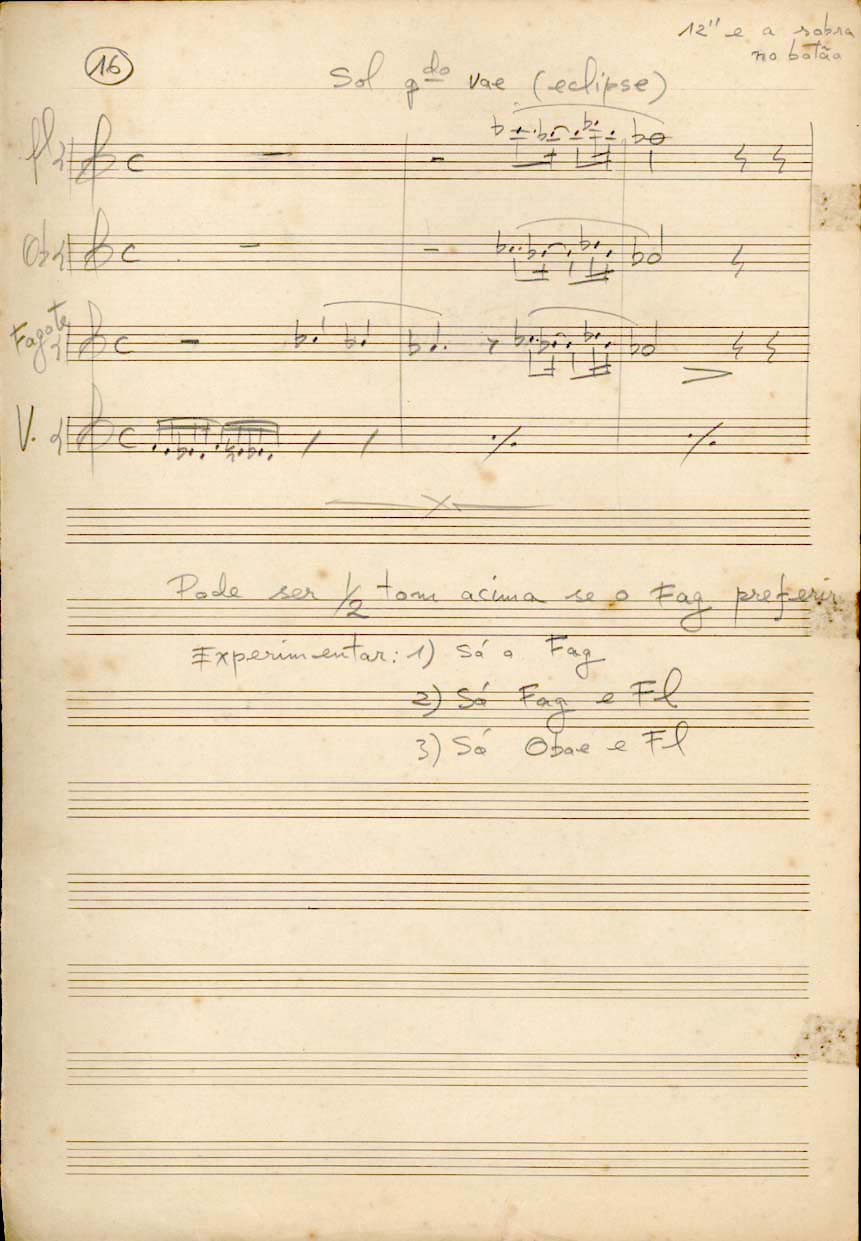 12" e a sobra
no botão
16
Sol qdo vae (eclipse)
fl
C
Ob
C
Fagote
C
V.
C
Pode ser 1/2 tom acima se o Fag preferir
Experimentar: 1) Só o Fag
2) Só Fag e Fl
3) Só Oboe e Fl